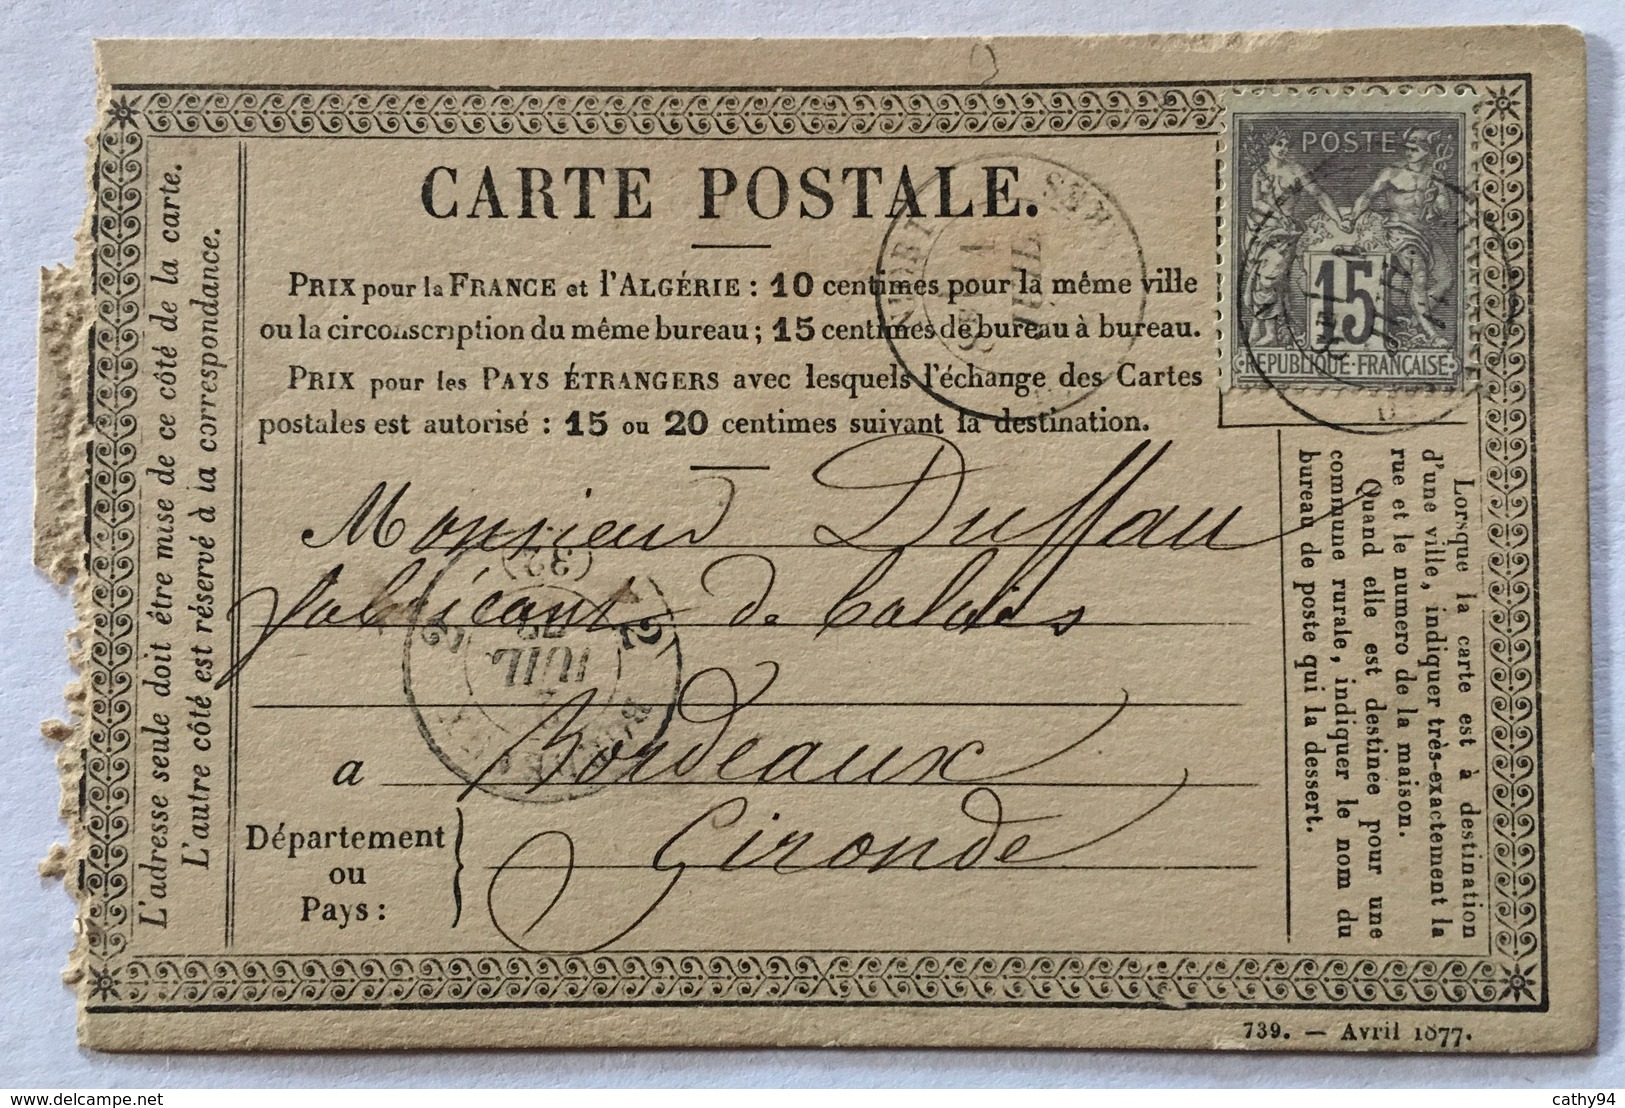 CARTE POSTALE.
PRIX pour la FRANCE et l'ALGÉRIE : 10 centimes pour la même ville
ou la circonscription du même bureau ; 15 centimes de bureau à bureau.
PRIX pour les PAYS ÉTRANGERS avec lesquels l'échange des Cartes
postales est autorisé : 15 ou 20 centimes suivant la destination.
POSTE
15
REPUBLIQUE FRANÇAISE
JUIL
Monsieur Duffau
fabricant de
a Bordeaux
Département
ou
Pays :
Gironde
JUIL
(32)
L'adresse seule doit être mise de ce côté de la carte.
L'autre côté est réservé à la correspondance.
Lorsque la carte est à destination
d'une ville, indiquer très-exactement la
rue et le numero de la maison.
Quand elle est destinée pour une
commune rurale, indiquer le nom du
bureau de poste qui la dessert.
739. — Avril 1877.
cathy94
delcampe.net